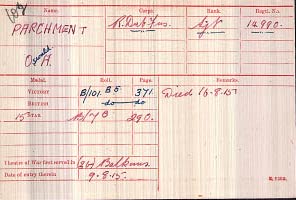 Name. Corps. Rank. Regtl. No.
PARCHMENT R. Dub. Fus. 14990.
Oswald H.
Medal. Roll. Page. Remarks.
VICTORY B/101. B5 371 Died 16-8-15
BRITISH do do
15 STAR 290.
Theatre of War first served in (2b) Balkans
Date of entry therein 9-8-15.